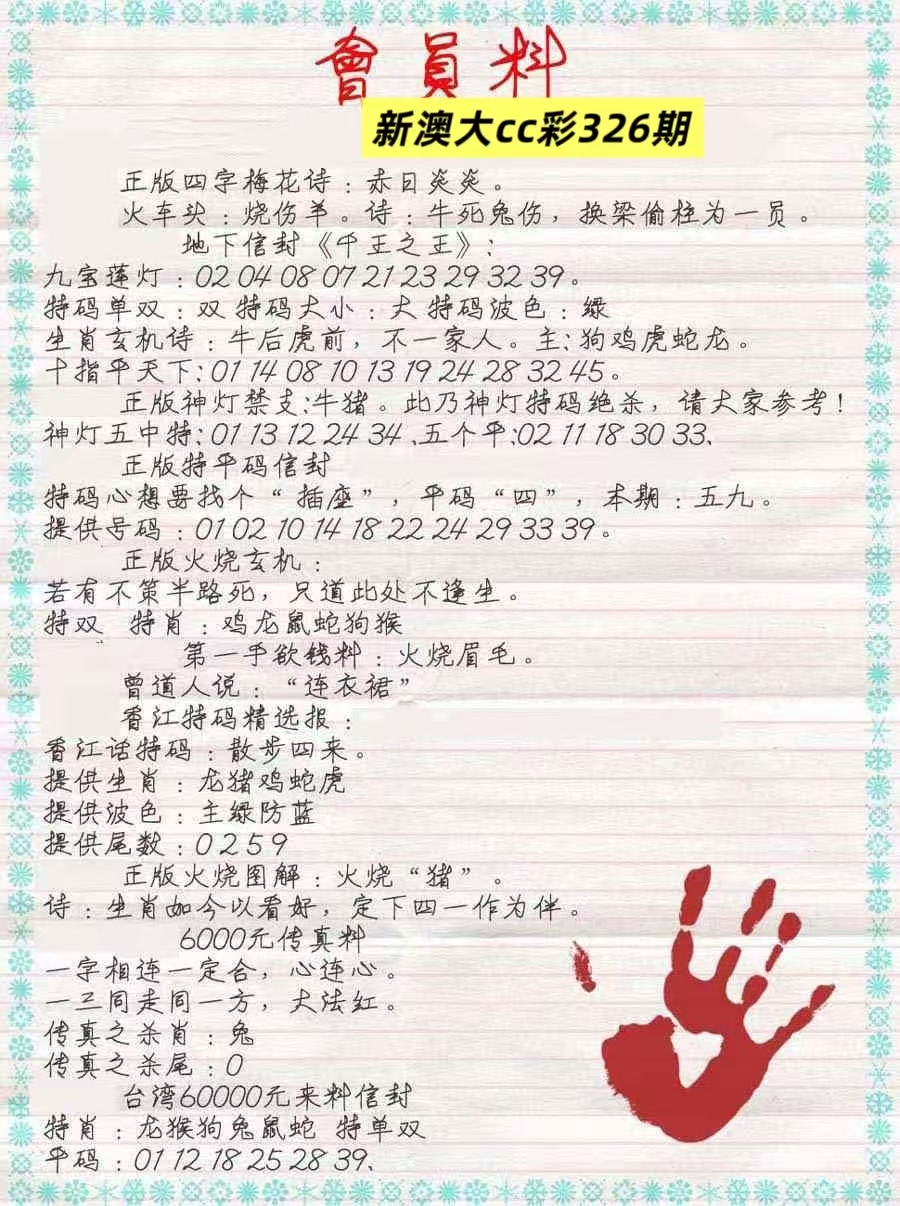 會員料
新澳大cc彩326期
正版四字梅花诗：赤日炎炎。
火车头：烧伤羊。诗：牛死兔伤，换梁偷柱为一员。
地下信封《千王之王》：
九宝莲灯：02 04 08 07 21 23 29 32 39。
特码单双：双 特码大小：大 特码波色：绿
生肖玄机诗：牛后虎前，不一家人。主：狗鸡虎蛇龙。
十指平天下：01 14 08 10 13 19 24 28 32 45。
正版神灯禁支：牛猪。此乃神灯特码绝杀，请大家参考！
神灯五中特：01 13 12 24 34、五个平：02 11 18 30 33、
正版特平码信封
特码心想要找个“插座”，平码“四”，本期：五九。
提供号码：01 02 10 14 18 22 24 29 33 39。
正版火烧玄机：
若有不策半路死，只道此处不逢生。
特双 特肖：鸡龙鼠蛇狗猴
第一手欲钱料：火烧眉毛。
曾道人说：“连衣裙”
香江特码精选报：
香江话特码：散步四来。
提供生肖：龙猪鸡蛇虎
提供波色：主绿防蓝
提供尾数：0 2 5 9
正版火烧图解：火烧“猪”。
诗：生肖如今以看好，定下四一作为伴。
6000元传真料
一字相连一定合，心连心。
一三同走同一方，大法红。
传真之杀肖：兔
传真之杀尾：0
台湾60000元来料信封
特肖：龙猴狗兔鼠蛇 特单双
平码：01 12 18 25 28 39、